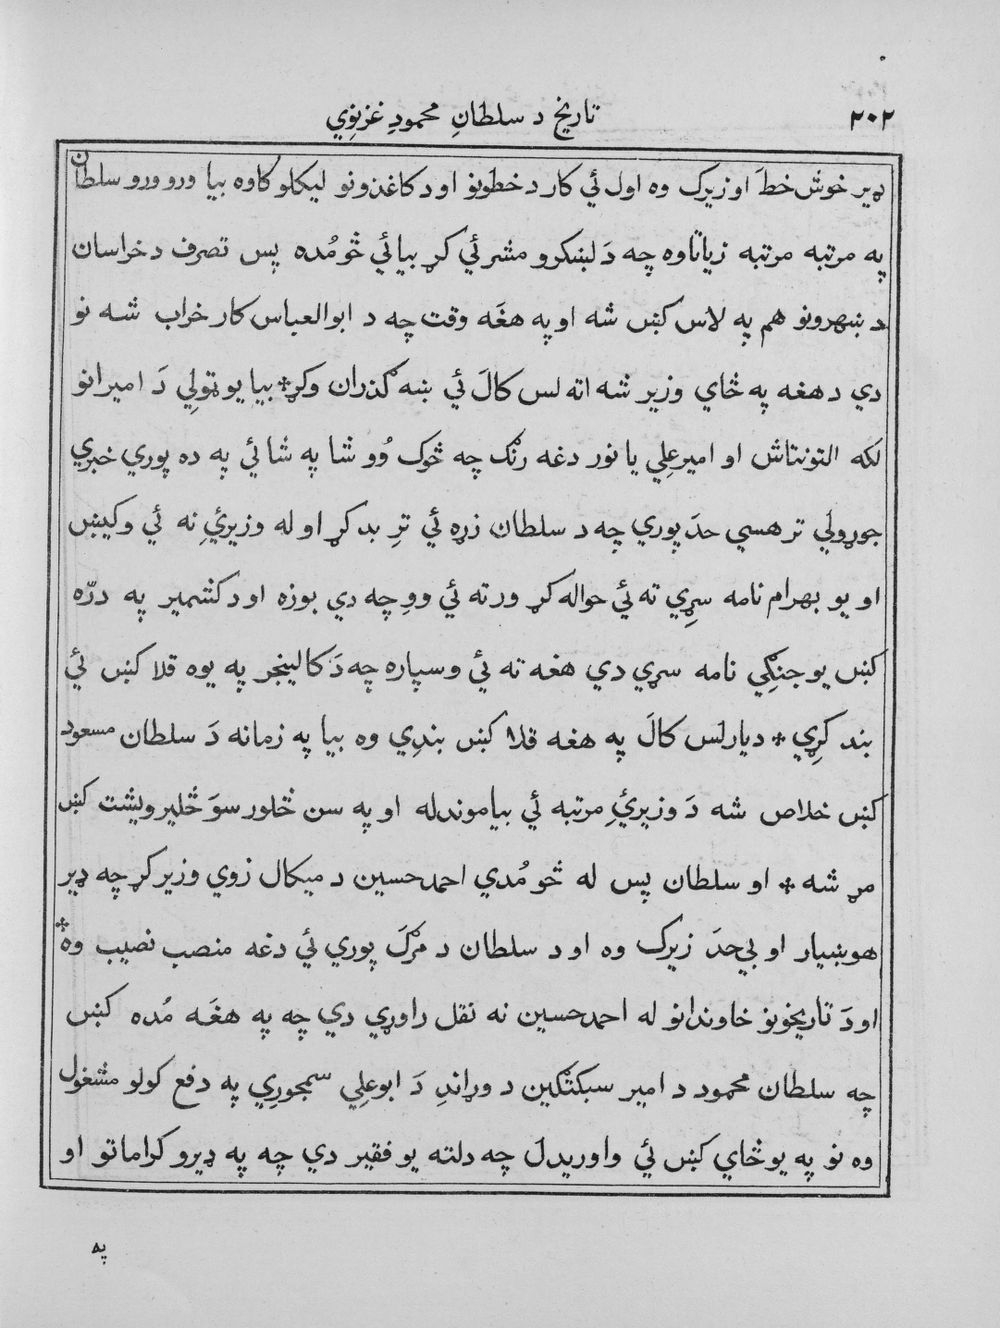 ۲۰۲ تاریخ د سلطانِ محمودِ غزنوِي
ډیر خوش خطَ او زیرک وه اول ئې کار د خطونو او د کاغذونو لیکلو کاوه بیا ورو ورو سلطان
په مرتبه مرتبه زیاتاوه چه دَ لښکرو مشر ئې کړ بیا ئې څو مُده پس تصرف د خراسان
د ښهرونو هم په لاس کښ شه او په هغَه وقت چه د ابوالعباس کار خراب شه نو
دي د هغه په ځاي وزیر شه اته لس کالَ ئې ښه ګذران وکړ * بیا یو ټولِي دَ امیرانو
لکه التونتاش او امیر علِي یا نور دغه رنګ چه څوک وُو شا په شا ئې په ده پورې خبرې
جوړولې تر هسې حدَ پورې چه د سلطان زړه ئې ترِ بد کړ او له وزیرئِ نه ئې وکیښ
او یو بهرام نامه سړِي ته ئې حواله کړ ورته ئې ووِ چه دې بوزه او د کشمیر په درّه
کښ یو جنګِي نامه سړي دي هغه ته ئې وسپاره چه دَ کالینجر په یوه قلا کښ ئې
بند کړِي * دیارلس کالَ په هغه قلا کښ بندِي وه بیا په زمانه دَ سلطان مسعود
کښ خلاص شه دَ وزیرئِ مرتبه ئې بیا موندله او په سن څلور سوَ څلیرویشت کښ
مړ شه * او سلطان پس له څو مُدې احمد حسین د میکال زوي وزیر کړ چه ډیر
هوښیار او بي حدَ زیرک وه او د سلطان د مرګَ پورې ئې دغه منصب نصیب وه *
او دَ تاریخونو خاوندانو له احمد حسین نه نقل راوړي دي چه په هغَه مُده کښ
چه سلطان محمود د امیر سبکتګین د وړاندِ دَ ابو علِي سمجورِي په دفع کولو مشغول
وه نو په یو ځاي کښ ئې واوریدلَ چه دلته یو فقیر دي چه په ډیرو کراماتو او
په